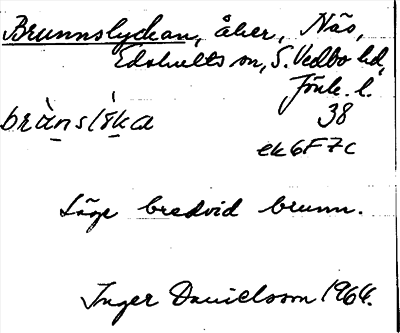 Brunnslyckan, åker, Näs,
Edshults sn, S. Vedbo hd,
Jönk. l.
38
brȧnslíka
ek6F7c
Läge bredvid brunn.
Inger Danielsson 1964.